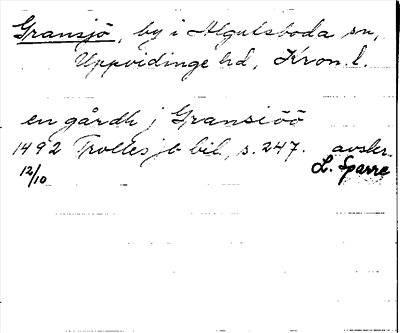 Gransjö, by i Algutsboda sn,
Uppvidinge hd, Kron. l.
en gårdh j Gransiöö
1492 Trolles jb bil, s. 247. avskr.
12/10 L. Sparre